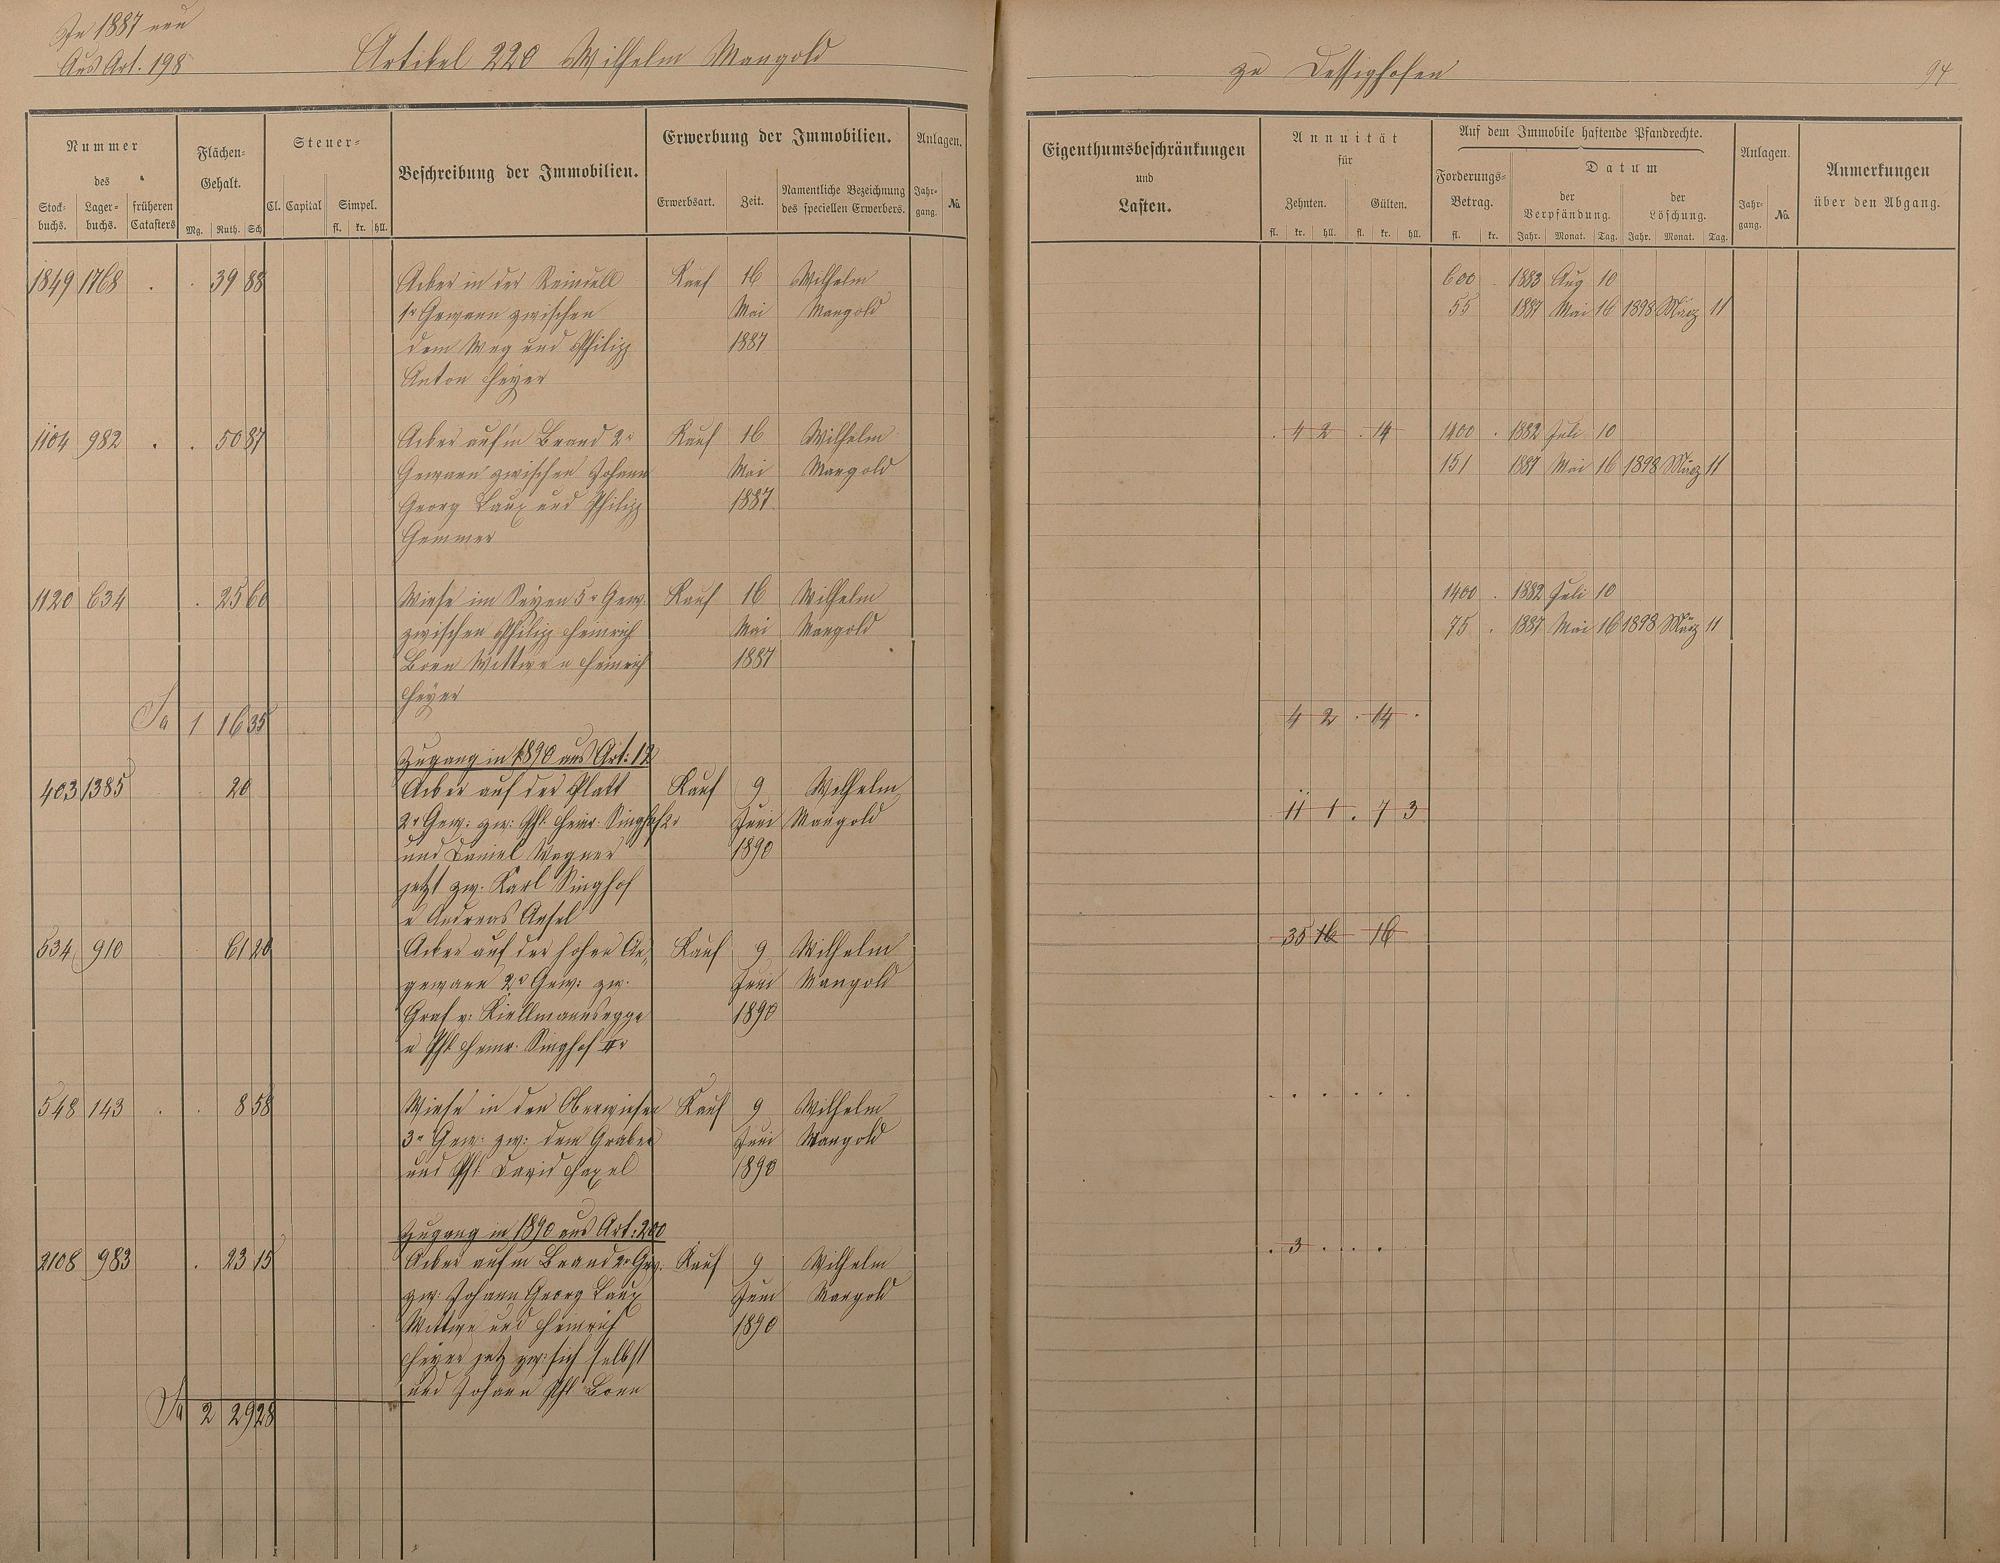 In 1887 neu
Aus Art. 198
Artikel 220 Wilhelm Mangold
zu Dessighofen
94
Nummer
des
Stock-
buchs.
Lager-
buchs.
früheren
Catasters
Flächen-
Gehalt.
Mg. Ruth. Sch
Steuer-
Cl. Capital
Simpel.
fl. kr. hll.
Beschreibung der Immobilien.
Erwerbung der Immobilien.
Erwerbsart.
Zeit.
Namentliche Bezeichnung
des speciellen Erwerbers.
Anlagen.
Jahr-
gang.
No.
Eigenthumsbeschränkungen
und
Lasten.
Annuität
für
Zehnten.
Gülten.
fl. kr. hll. fl. kr. hll.
Auf dem Immobile haftende Pfandrechte.
Forderungs-
Betrag.
fl. kr.
Datum
der
Verpfändung.
der
Löschung.
Jahr. Monat. Tag. Jahr. Monat. Tag.
Anlagen.
Jahr-
gang.
No.
Anmerkungen
über den Abgang.
1849 1768 . . 39 88 Acker in der Kauf 16 Wilhelm 600 . 1883 Aug 10
1r Gewann zwischen Mai Mangold 55 1887 Mai 16 1898 März 11
dem Weg und Philipp 1887
Anton Heyer
1104 982 . . 50 87 Acker auf'm Brand 2r Kauf 16 Wilhelm . 4 2 . 14 1400 . 1882 Juli 10
Gewann zwischen Johann Mai Mangold 151 1887 Mai 16 1898 März 11
Georg Laux und Philipp 1887
Gemmer
1120 634 . 25 60 Wiese im Seyen 5r Gew. Kauf 16 Wilhelm 1400 . 1882 Juli 10
zwischen Philipp Heinrich Mai Mangold 75 . 1887 Mai 16 1898 März 11
Born Wittwe u Heinrich 1887
Heyer
Sa 1 16 35 4 2 . 14 .
Zugang in 1890 aus Art: 12
403 1385 20 Acker auf der Platt Kauf 9 Wilhelm 11 1 . 7 3
2r Gew: zw: Phl. Heinr. Singhof 2r Juni Mangold
und Daniel Wagner 1890
jetzt zw. Karl Singhof
u Andreas Ansel
534 910 61 20 Acker auf der hohen An- Kauf 9 Wilhelm 35 16 16
gewann 2r Gew: zw. Juni Mangold
Graf v: Kiellmannsegge 1890
u Phl Heinr. Singhof IIr
548 143 . . 8 58 Wiese in den Oberwiesen Kauf 9 Wilhelm . . . . . .
3r Gew: zw: dem Graben Juni Mangold
und Phl. David Haxel 1890
Zugang in 1890 aus Art: 200
2108 983 . 23 15 Acker aufm Brand 2r Gew. Kauf 9 Wilhelm . 3 . . . .
zw: Johann Georg Laux Juni Mangold
Wittwe und Heinrich 1890
Heyer jetz zw: sich selbst
und Johann Phl Born
Sa 2 29 28